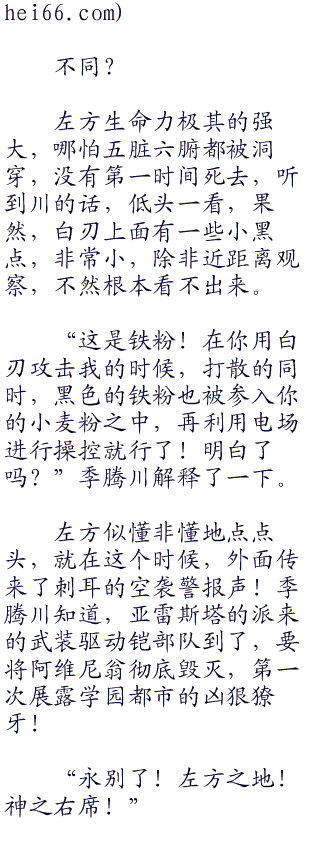 hei66.com)
不同？
左方生命力极其的强
大，哪怕五脏六腑都被洞
穿，没有第一时间死去，听
到川的话，低头一看，果
然，白刃上面有一些小黑
点，非常小，除非近距离观
察，不然根本看不出来。
“这是铁粉！在你用白
刃攻击我的时候，打散的同
时，黑色的铁粉也被参入你
的小麦粉之中，再利用电场
进行操控就行了！明白了
吗？”季腾川解释了一下。
左方似懂非懂地点点
头，就在这个时候，外面传
来了刺耳的空袭警报声！季
腾川知道，亚雷斯塔的派来
的武装驱动铠部队到了，要
将阿维尼翁彻底毁灭，第一
次展露学园都市的凶狠獠
牙！
“永别了！左方之地！
神之右席！”